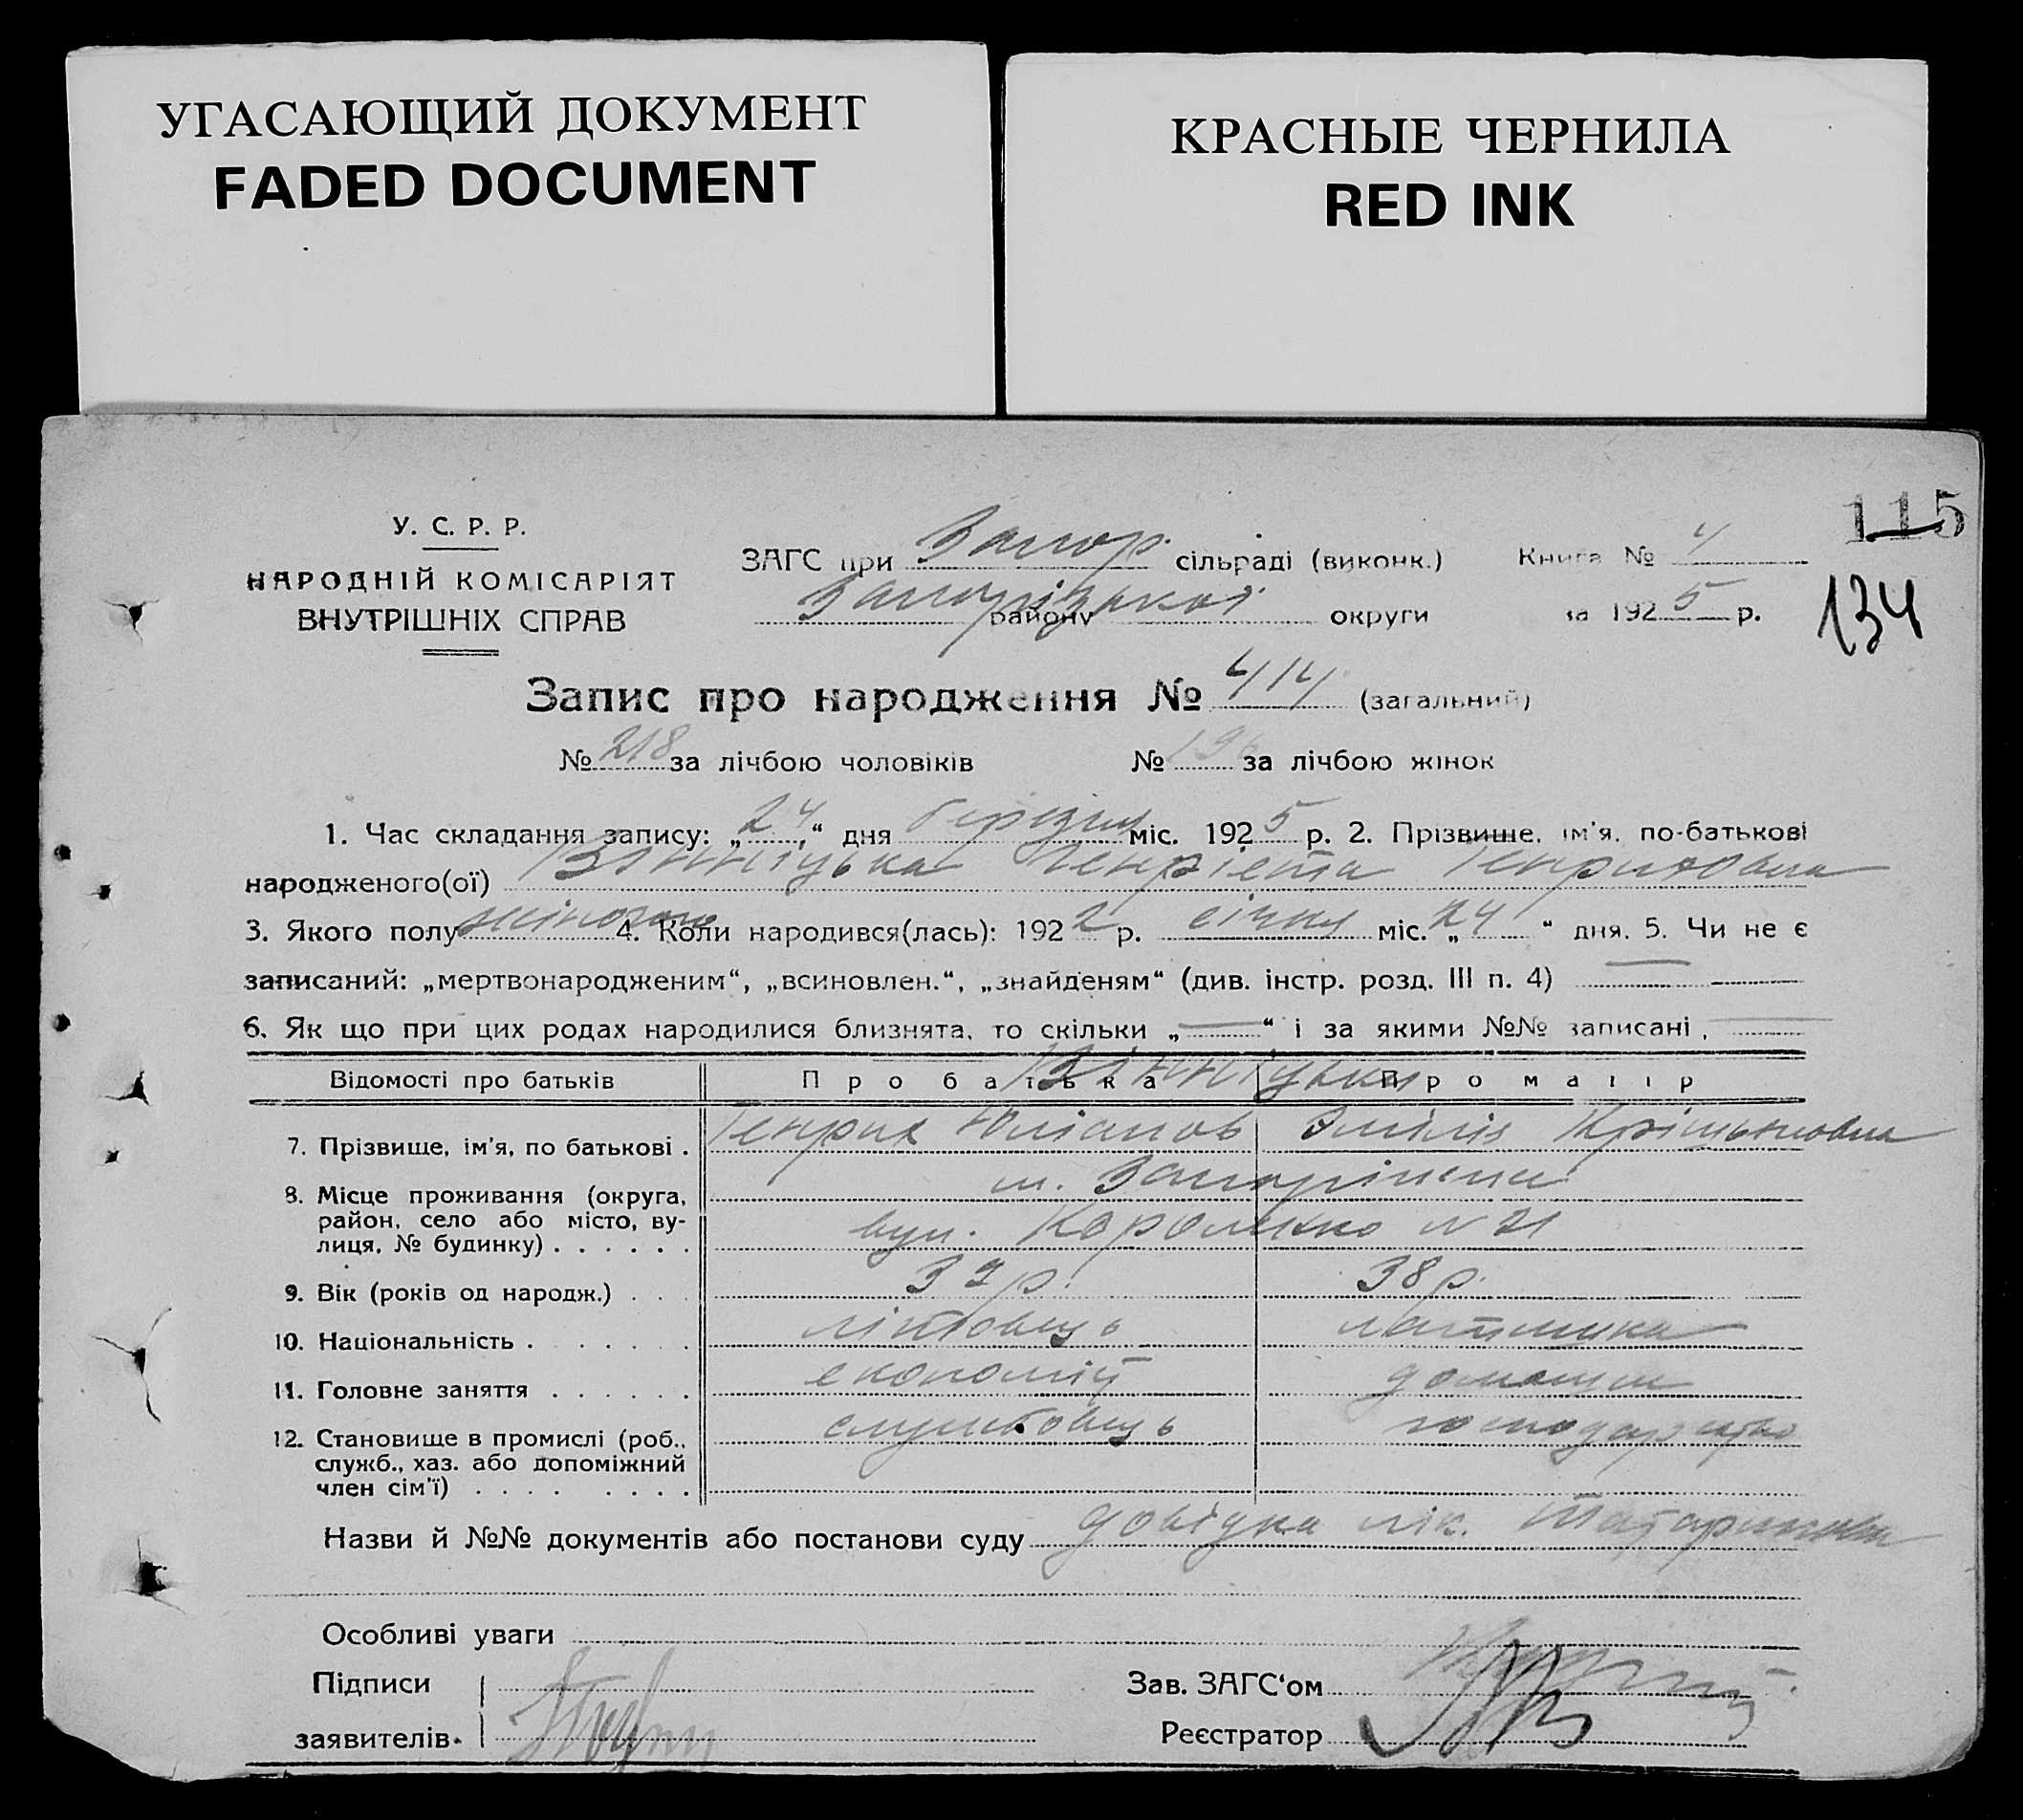 УГАСАЮЩИЙ ДОКУМЕНТ
FADED DOCUMENT
КРАСНЫЕ ЧЕРНИЛА
RED INK
115
134
У. С. Р. Р.
НАРОДНІЙ КОМІСАРІЯТ
ВНУТРІШНІХ СПРАВ
ЗАГС при Запор. сільраді (виконк.) Книга № 4
Запорізької району округи за 1925 р.
Запис про народження № 414 (загальний)
№ 218 за лічбою чоловіків № 196 за лічбою жінок
1. Час складання запису: „24“ дня березня міс. 1925 р. 2. Прізвище, ім'я, по-батькові
народженого(ої) Вінніцька Генрієта Генриховна
3. Якого полу жіночого 4. Коли народився(лась): 1922 р. січня міс. „24“ дня. 5. Чи не є
записаний: „мертвонародженим“, „всиновлен.“, „знайденям“ (див. інстр. розд. III п. 4)
6. Як що при цих родах народилися близнята, то скільки „—“ і за якими №№ записані,
Відомості про батьків Про батька Про матір
Вінніцьки
7. Прізвище, ім'я, по батькові . Генрих Юліанов Эмілія
8. Місце проживання (округа, район, село або місто, вулиця, № будинку) . . . . . . м. Запоріжжя
вул. N 21
9. Вік (років од народж.) . . . р. 38 р.
10. Національність . . . . . . . літовець латишка
11. Головне заняття . . . . . . економіст домашн
12. Становище в промислі (роб., служб., хаз. або допоміжний член сім'ї) . . . . . . . . службовець господарство
Назви й №№ документів або постанови суду довідка лік.
Особливі уваги
Підписи
заявителів.
Зав. ЗАГС'ом
Реєстратор